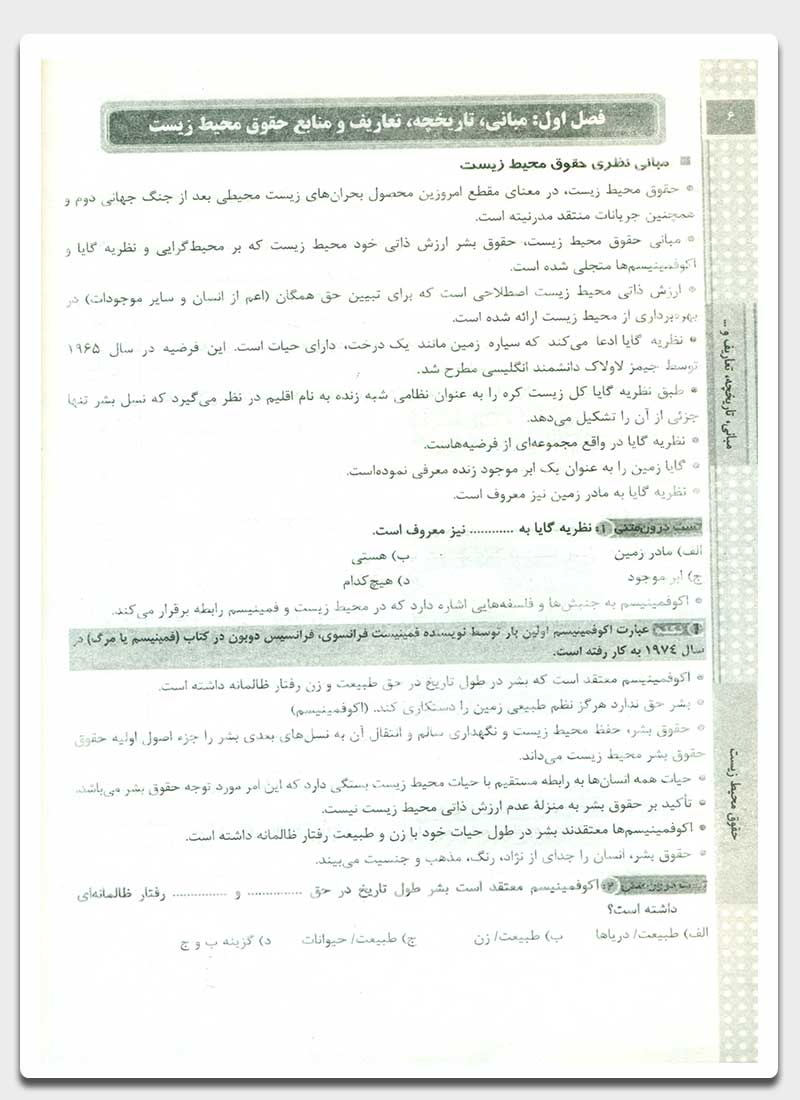 ۶
فصل اول: مبانی، تاریخچه، تعاریف و منابع حقوق محیط زیست
مبانی نظری حقوق محیط زیست
• حقوق محیط زیست، در معنای مقطع امروزین محصول بحران‌های زیست محیطی بعد از جنگ جهانی دوم و
همچنین جریانات منتقد مدرنیته است.
• مبانی حقوق محیط زیست، حقوق بشر ارزش ذاتی خود محیط زیست که بر محیط‌گرایی و نظریه گایا و
اکوفمینیسم‌ها متجلی شده است.
• ارزش ذاتی محیط زیست اصطلاحی است که برای تبیین حق همگان (اعم از انسان و سایر موجودات) در
بهره‌برداری از محیط زیست ارائه شده است.
• نظریه گایا ادعا می‌کند که سیاره زمین مانند یک درخت، دارای حیات است. این فرضیه در سال ۱۹۶۵
توسط جیمز لاولاک دانشمند انگلیسی مطرح شد.
• طبق نظریه گایا کل زیست کره را به عنوان نظامی شبه زنده به نام اقلیم در نظر می‌گیرد که نسل بشر تنها
جزئی از آن را تشکیل می‌دهد.
• نظریه گایا در واقع مجموعه‌ای از فرضیه‌هاست.
• گایا زمین را به عنوان یک ابر موجود زنده معرفی نموده‌است.
• نظریه گایا به مادر زمین نیز معروف است.
تست درون‌متنی ۱: نظریه گایا به ............ نیز معروف است.
الف) مادر زمین ب) هستی
ج) ابر موجود د) هیچ‌کدام
• اکوفمینیسم به جنبش‌ها و فلسفه‌هایی اشاره دارد که در محیط زیست و فمینیسم رابطه برقرار می‌کند.
نکته عبارت اکوفمینیسم اولین بار توسط نویسنده فمینیست فرانسوی، فرانسیس دوبون در کتاب (فمینیسم یا مرگ) در
سال ۱۹۷٤ به کار رفته است.
• اکوفمینیسم معتقد است که بشر در طول تاریخ در حق طبیعت و زن رفتار ظالمانه داشته است.
• بشر حق ندارد هرگز نظم طبیعی زمین را دستکاری کند. (اکوفمینیسم)
• حقوق بشر، حفظ محیط زیست و نگهداری سالم و انتقال آن به نسل‌های بعدی بشر را جزء اصول اولیه حقوق
حقوق بشر محیط زیست می‌داند.
• حیات همه انسان‌ها به رابطه مستقیم با حیات محیط زیست بستگی دارد که این امر مورد توجه حقوق بشر می‌باشد.
• تأکید بر حقوق بشر به منزلهٔ عدم ارزش ذاتی محیط زیست نیست.
• اکوفمینیسم‌ها معتقدند بشر در طول حیات خود با زن و طبیعت رفتار ظالمانه داشته است.
• حقوق بشر، انسان را جدای از نژاد، رنگ، مذهب و جنسیت می‌بیند.
تست درون‌متنی ۲: اکوفمینیسم معتقد است بشر طول تاریخ در حق ............... و ............... رفتار ظالمانه‌ای
داشته است؟
الف) طبیعت/ دریاها ب) طبیعت/ زن ج) طبیعت/ حیوانات د) گزینه ب و ج
مبانی، تاریخچه، تعاریف و ...
حقوق محیط زیست